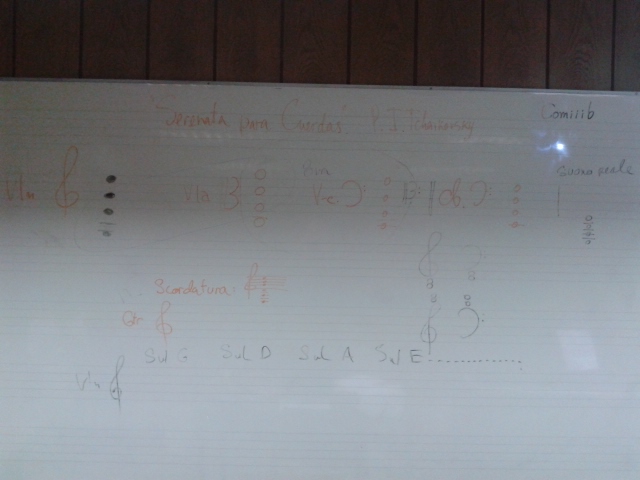 "Serenata para Cuerdas" P. I. Tchaikovsky Comisib
Vln Vla Vc suono reale
Scordatura:
Sul G Sul D Sul A Sul E
Vln